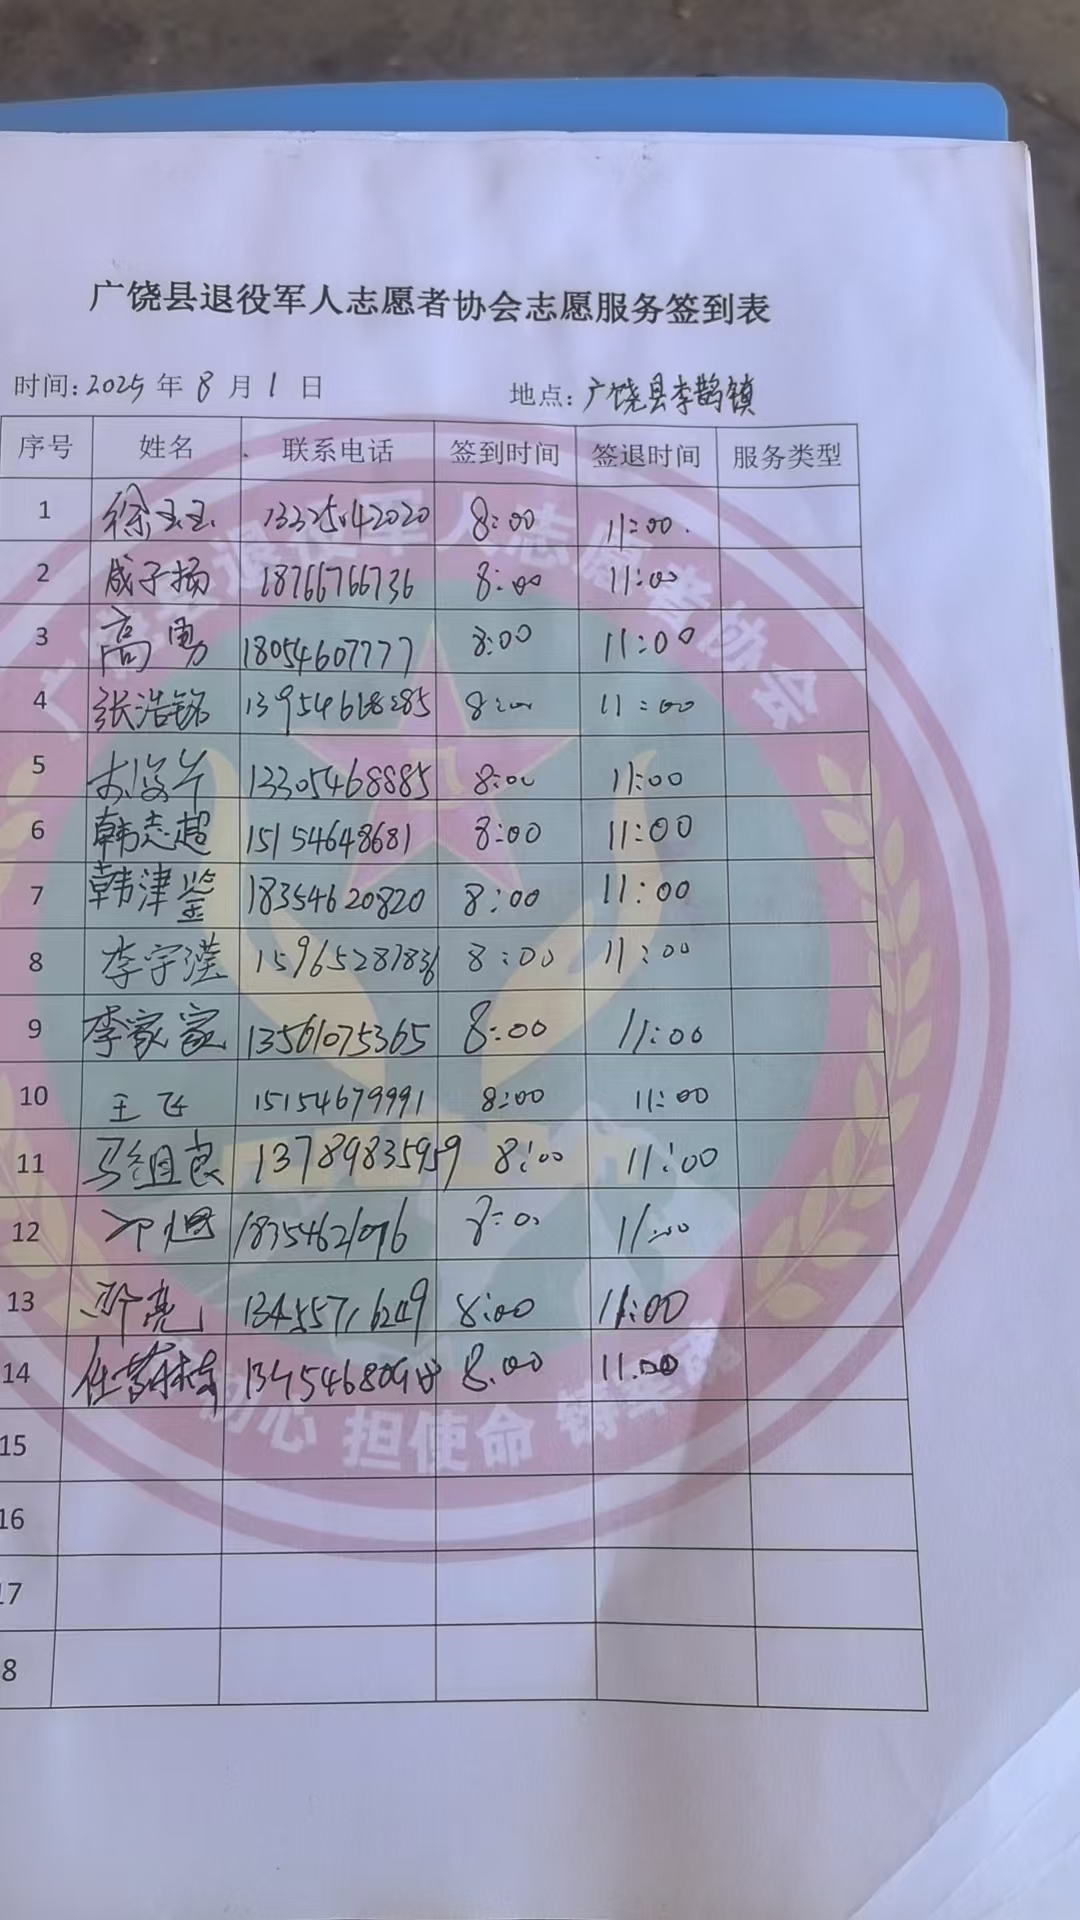 广饶县退役军人志愿者协会志愿服务签到表
时间: 2025 年 8 月 1 日 地点: 广饶县李鹊镇
序号 姓名 联系电话 签到时间 签退时间 服务类型
1 徐玉玉 13325042020 8:00 11:00
2 成子扬 18766766736 8:00 11:00
3 高勇 18054607777 8:00 11:00
4 张浩铭 8:00 11:00
5 13305468885 8:00 11:00
6 韩志超 15154648681 8:00 11:00
7 韩津鉴 18354620820 8:00 11:00
8 李宇 8:00 11:00
9 李家家 13561075365 8:00 11:00
10 王飞 15154679991 8:00 11:00
11 马组良 13789835959 8:00 11:00
12 8:00 11:00
13 亮 13455716249 8:00 11:00
14 任 8:00 11:00
15
16
17
8
广饶县退役军人志愿者协会
初心 担使命 铸军魂